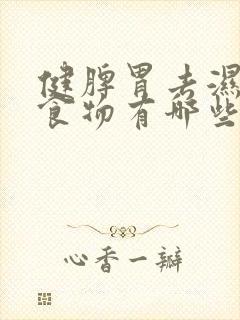 健脾胃去湿
食物有哪些
心香一瓣